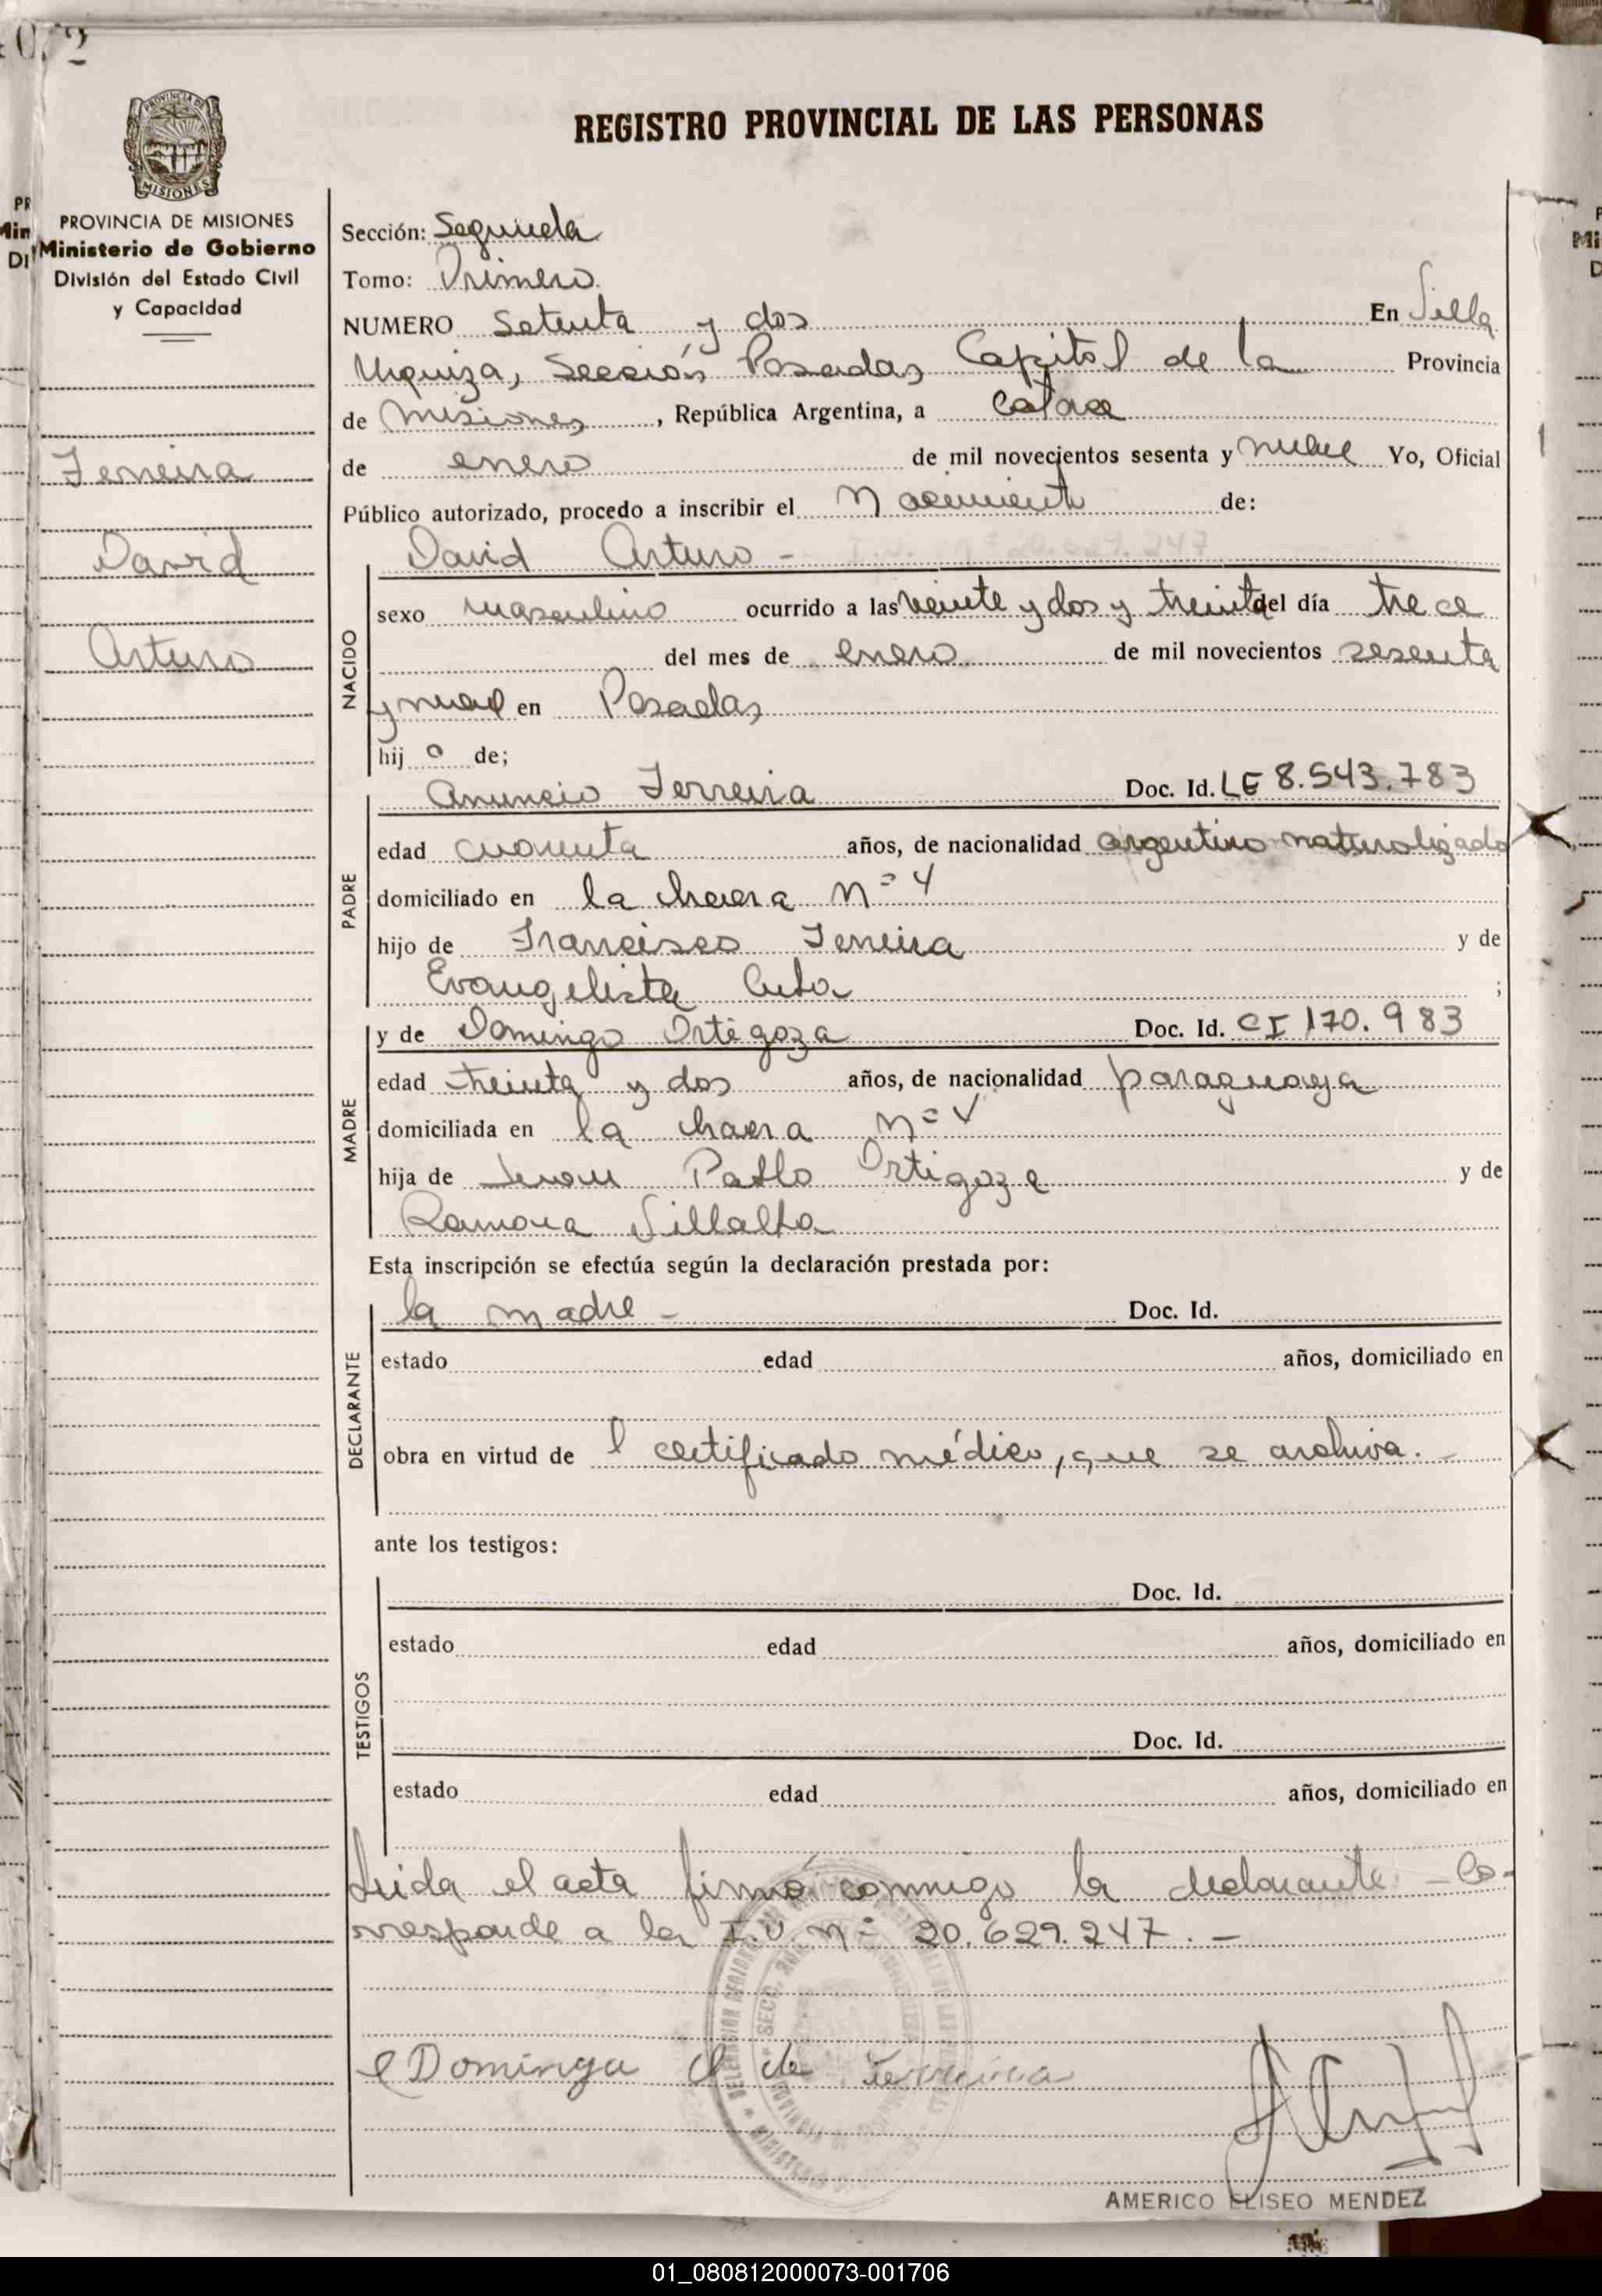 072
REGISTRO PROVINCIAL DE LAS PERSONAS
PROVINCIA DE MISIONES
Ministerio de Gobierno
División del Estado Civil
y Capacidad
Ferreira
David
Arturo
Sección: Segunda
Tomo: Primero.
NUMERO Setenta y dos En Villa
Urquiza, Sección Posadas Capital de la Provincia
de Misiones, República Argentina, a catorce
de enero de mil novecientos sesenta y nueve Yo, Oficial
Público autorizado, procedo a inscribir el Nacimiento de:
David Arturo -
NACIDO
sexo masculino ocurrido a las veinte y dos y treinta del día trece
del mes de enero de mil novecientos sesenta
y nueve en Posadas
hijo de;
PADRE
Anuncio Ferreira Doc. Id. LE 8.543.783
edad cuarenta años, de nacionalidad argentino naturalizado
domiciliado en la chacra n=4
hijo de Francisco Ferreira y de
Evangelista ;
MADRE
y de Domingo Ortigoza Doc. Id. CI 170.983
edad treinta y dos años, de nacionalidad paraguaya
domiciliada en la chacra n=4
hija de Juan Pablo Ortigoza y de
Ramona Villalba
Esta inscripción se efectúa según la declaración prestada por:
DECLARANTE
la madre - Doc. Id.
estado edad años, domiciliado en
obra en virtud de l certificado médico, que se archiva. -
ante los testigos:
TESTIGOS
Doc. Id.
estado edad años, domiciliado en
Doc. Id.
estado edad años, domiciliado en
Leida el acta firmó conmigo la declarante - Co-
rresponde a la I.U. n= 20.629.247. -
Dominga O de Ferreira
AMERICO ELISEO MENDEZ
01_080812000073-001706